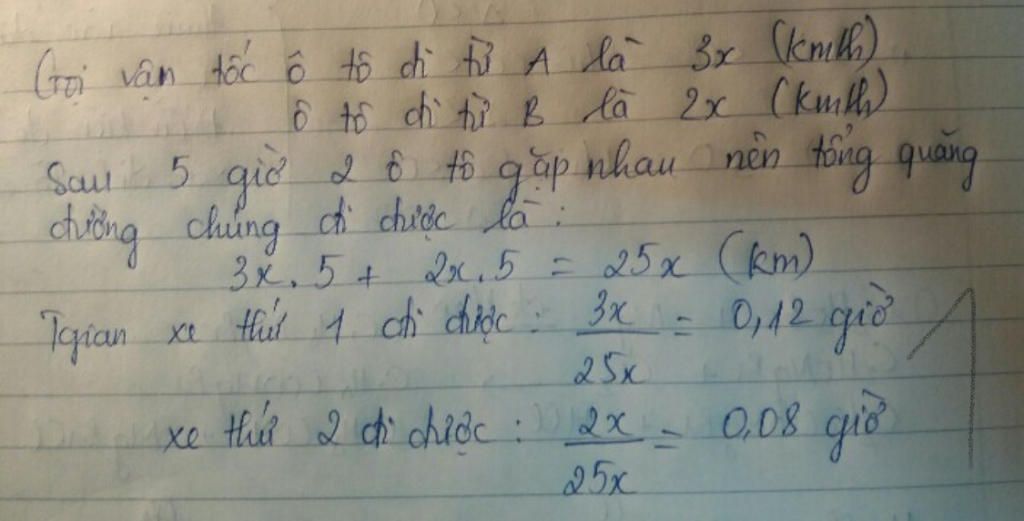 Gọi vận tốc ô tô đi từ A là 3x (km/h)
ô tô đi từ B là 2x (km/h)
Sau 5 giờ 2 ô tô gặp nhau nên tổng quãng
đường chúng đi được là :
3x . 5 + 2x . 5 = 25x (km)
Tgian xe thứ 1 đi được : 3x/25x = 0,12 giờ
xe thứ 2 đi được : 2x/25x = 0,08 giờ